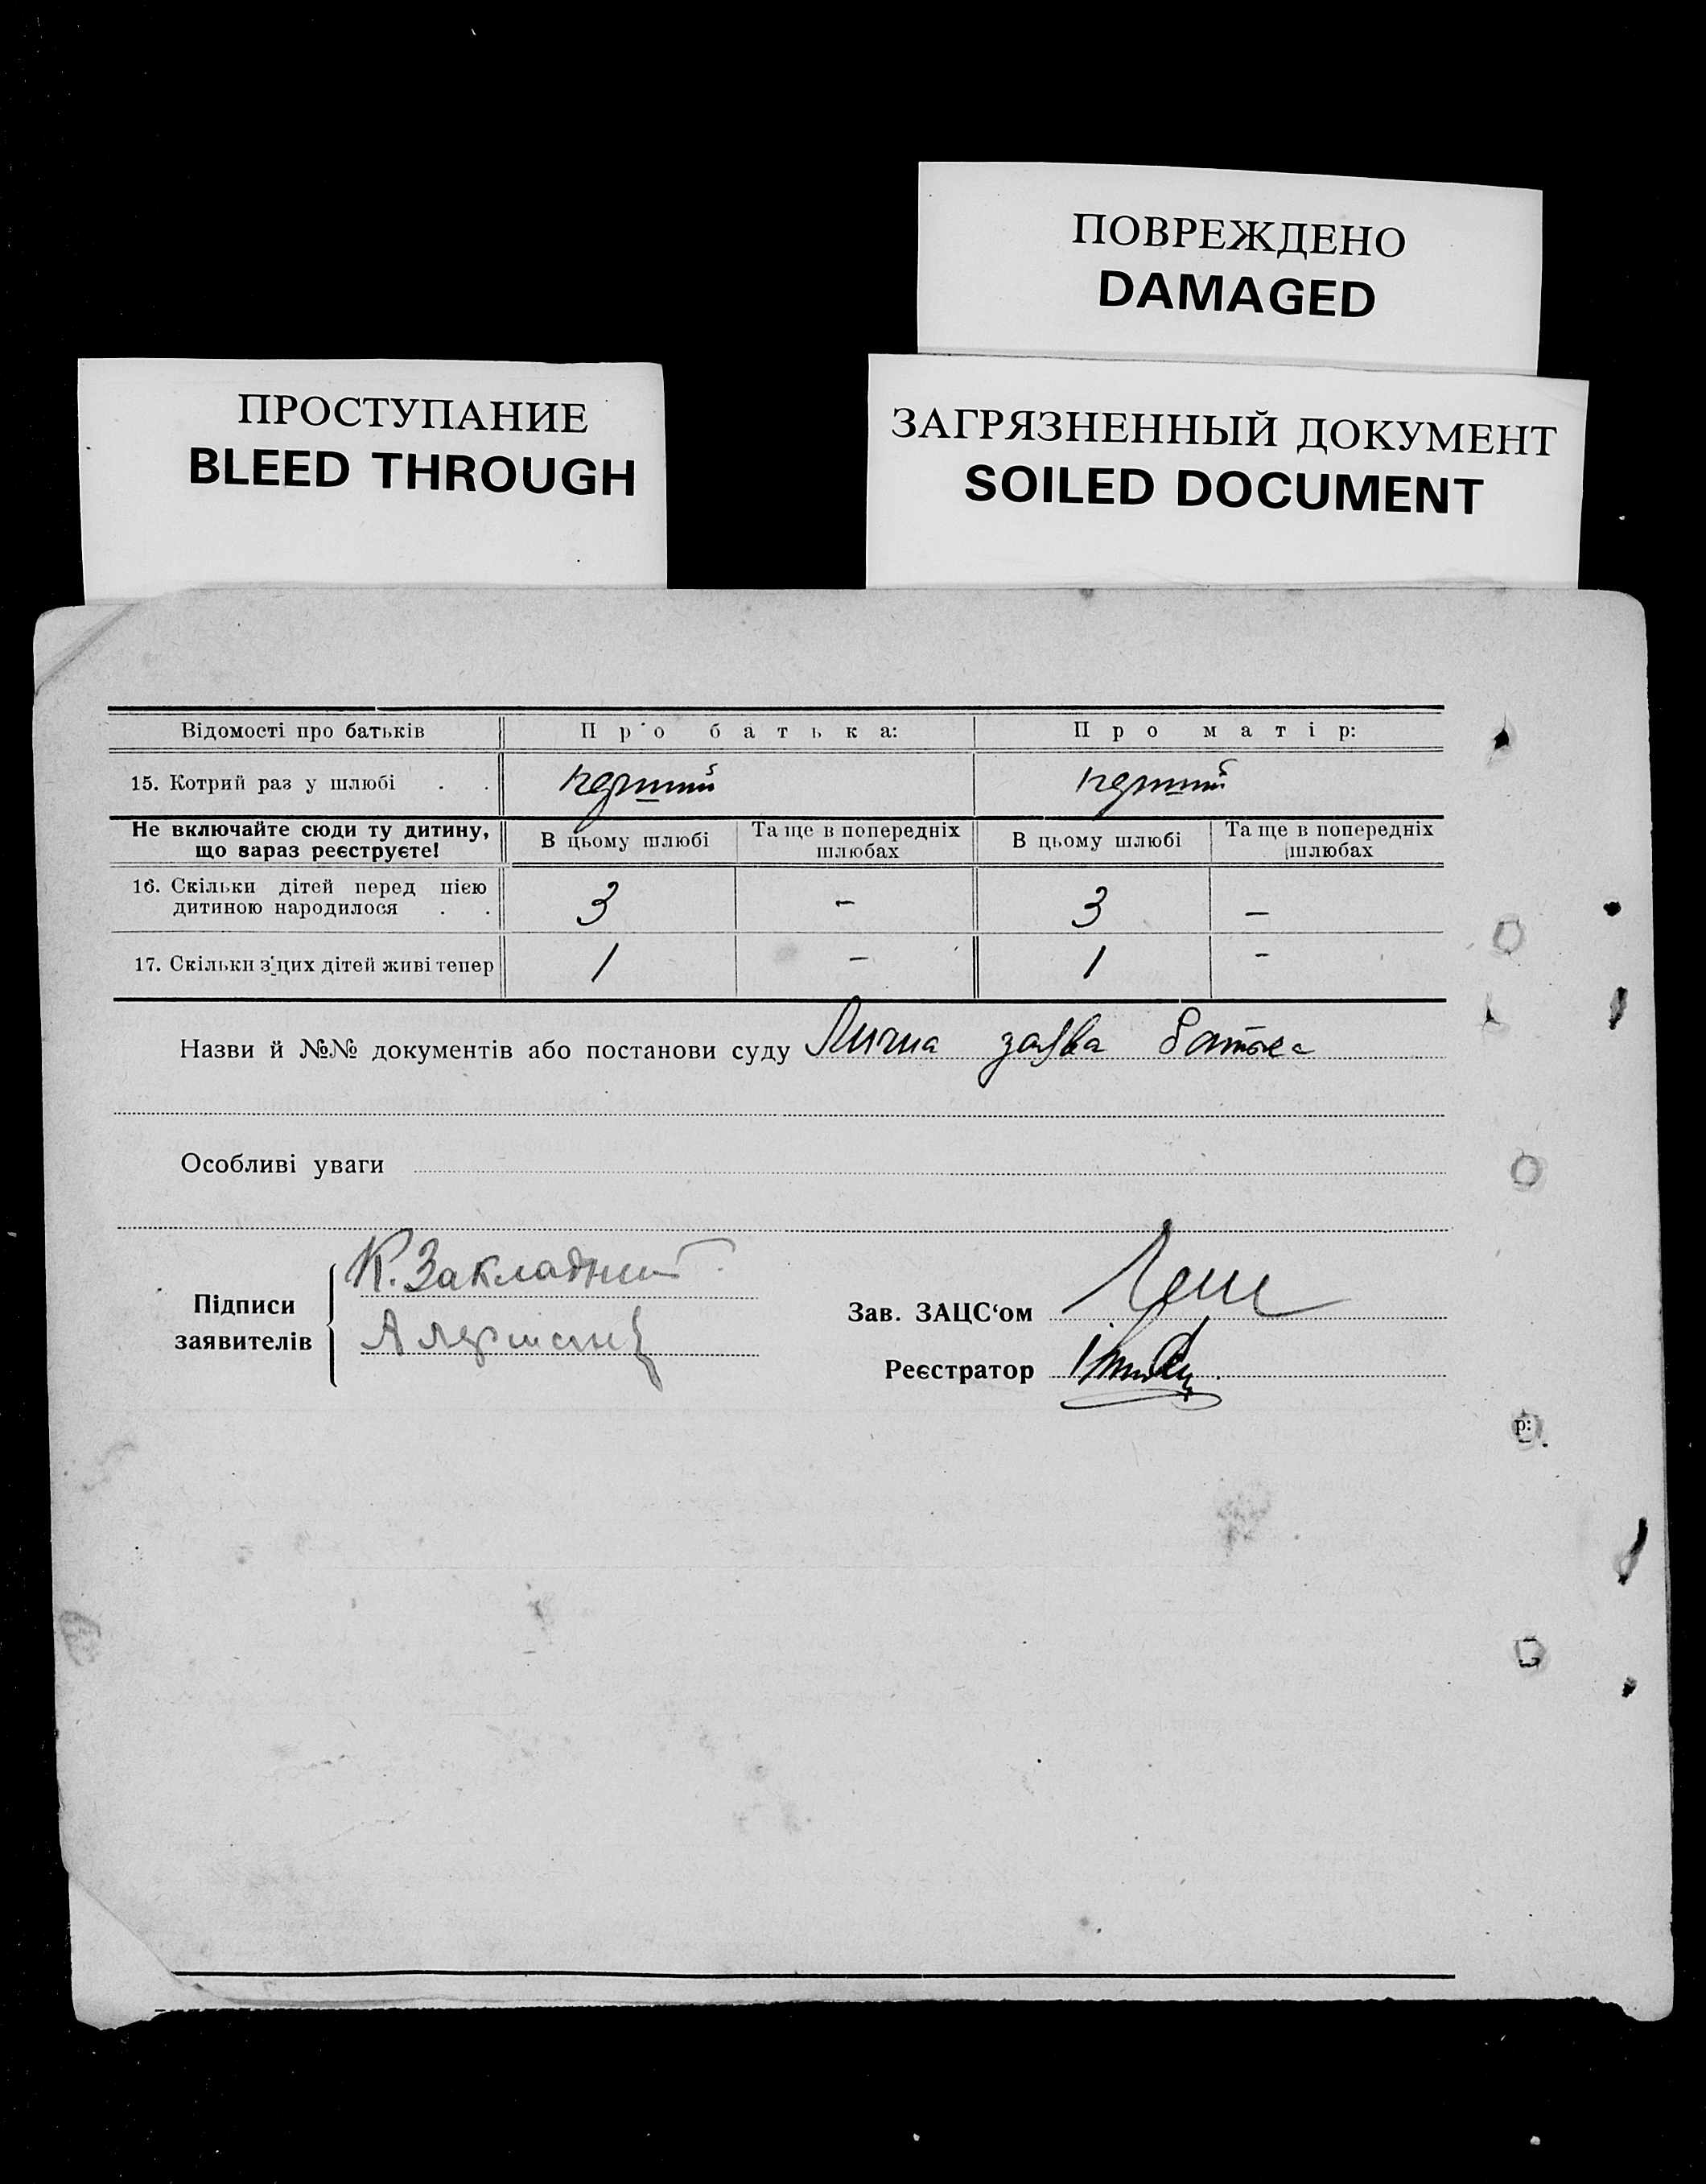 ПОВРЕЖДЕНО
DAMAGED
ПРОСТУПАНИЕ
BLEED THROUGH
ЗАГРЯЗНЕННЫЙ ДОКУМЕНТ
SOILED DOCUMENT
Відомості про батьків Про батька: Про матір:
15. Котрий раз у шлюбі . . перший перший
Не включайте сюди ту дитину, що вараз реєструєте! В цьому шлюбі Та ще в попередніх шлюбах В цьому шлюбі Та ще в попередніх шлюбах
16. Скільки дітей перед цією
дитиною народилося . . 3 – 3 –
17. Скільки з цих дітей живі тепер 1 – 1 –
Назви й №№ документів або постанови суду Лична заява батька
Особливі уваги
Підписи заявителів
К. Закладний
Зав. ЗАЦС‘ом
Реєстратор
р: